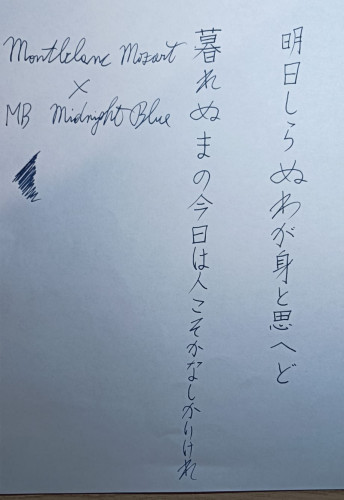 明日しらぬわが身と思へど
暮れぬまの今日は人こそかなしかりけれ
Montblanc Mozart
×
MB Midnight Blue